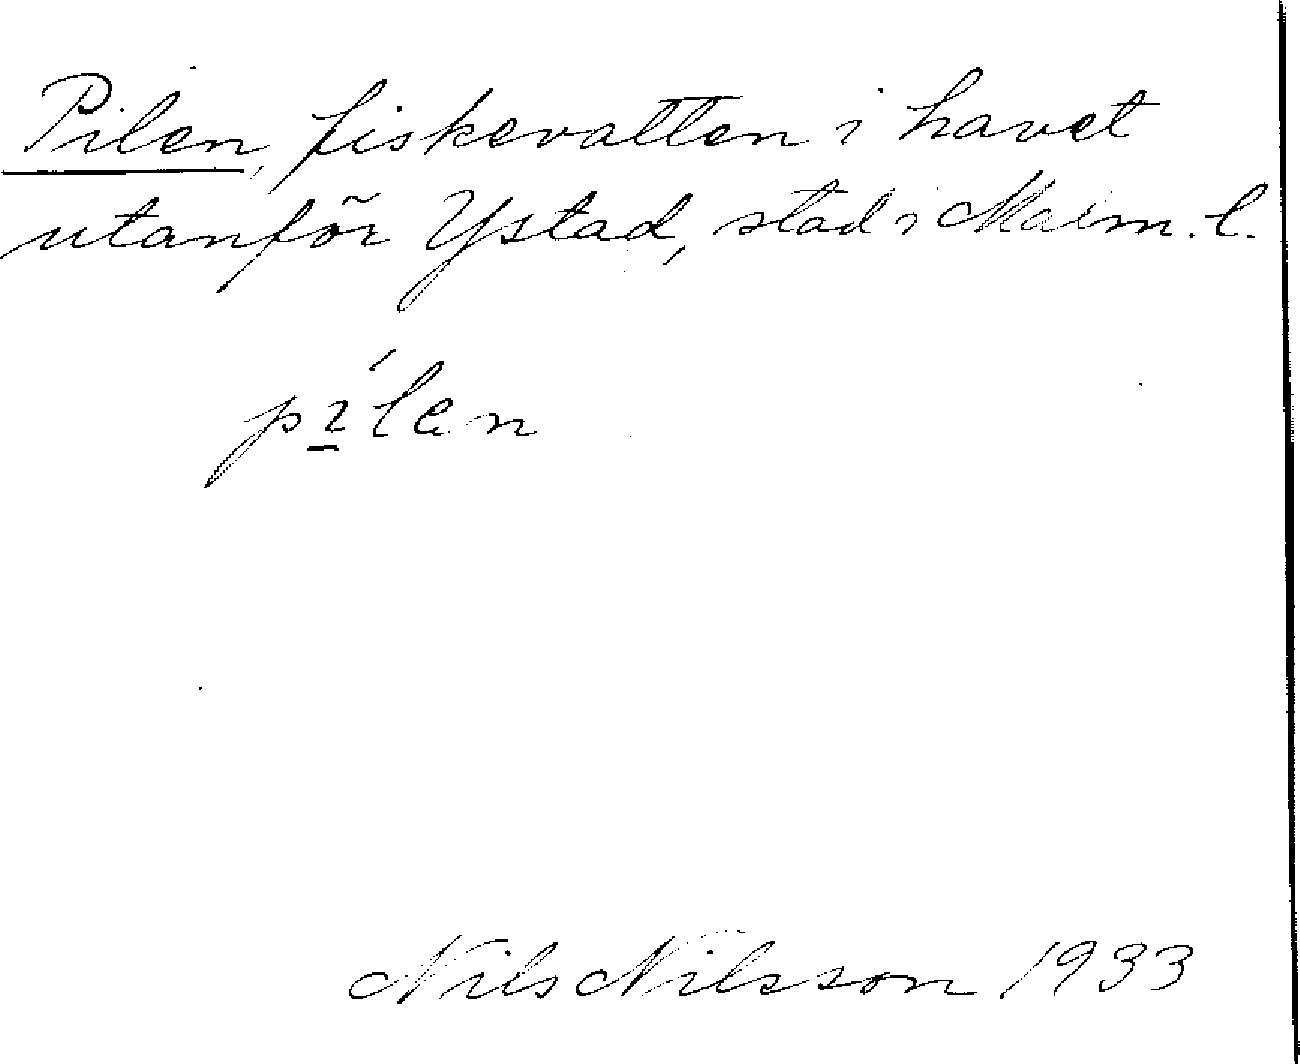 Pilen, fiskevatten i havet
utanför Ystad, stad i Malm. l.
pi̱´len
Nils Nilsson 1933